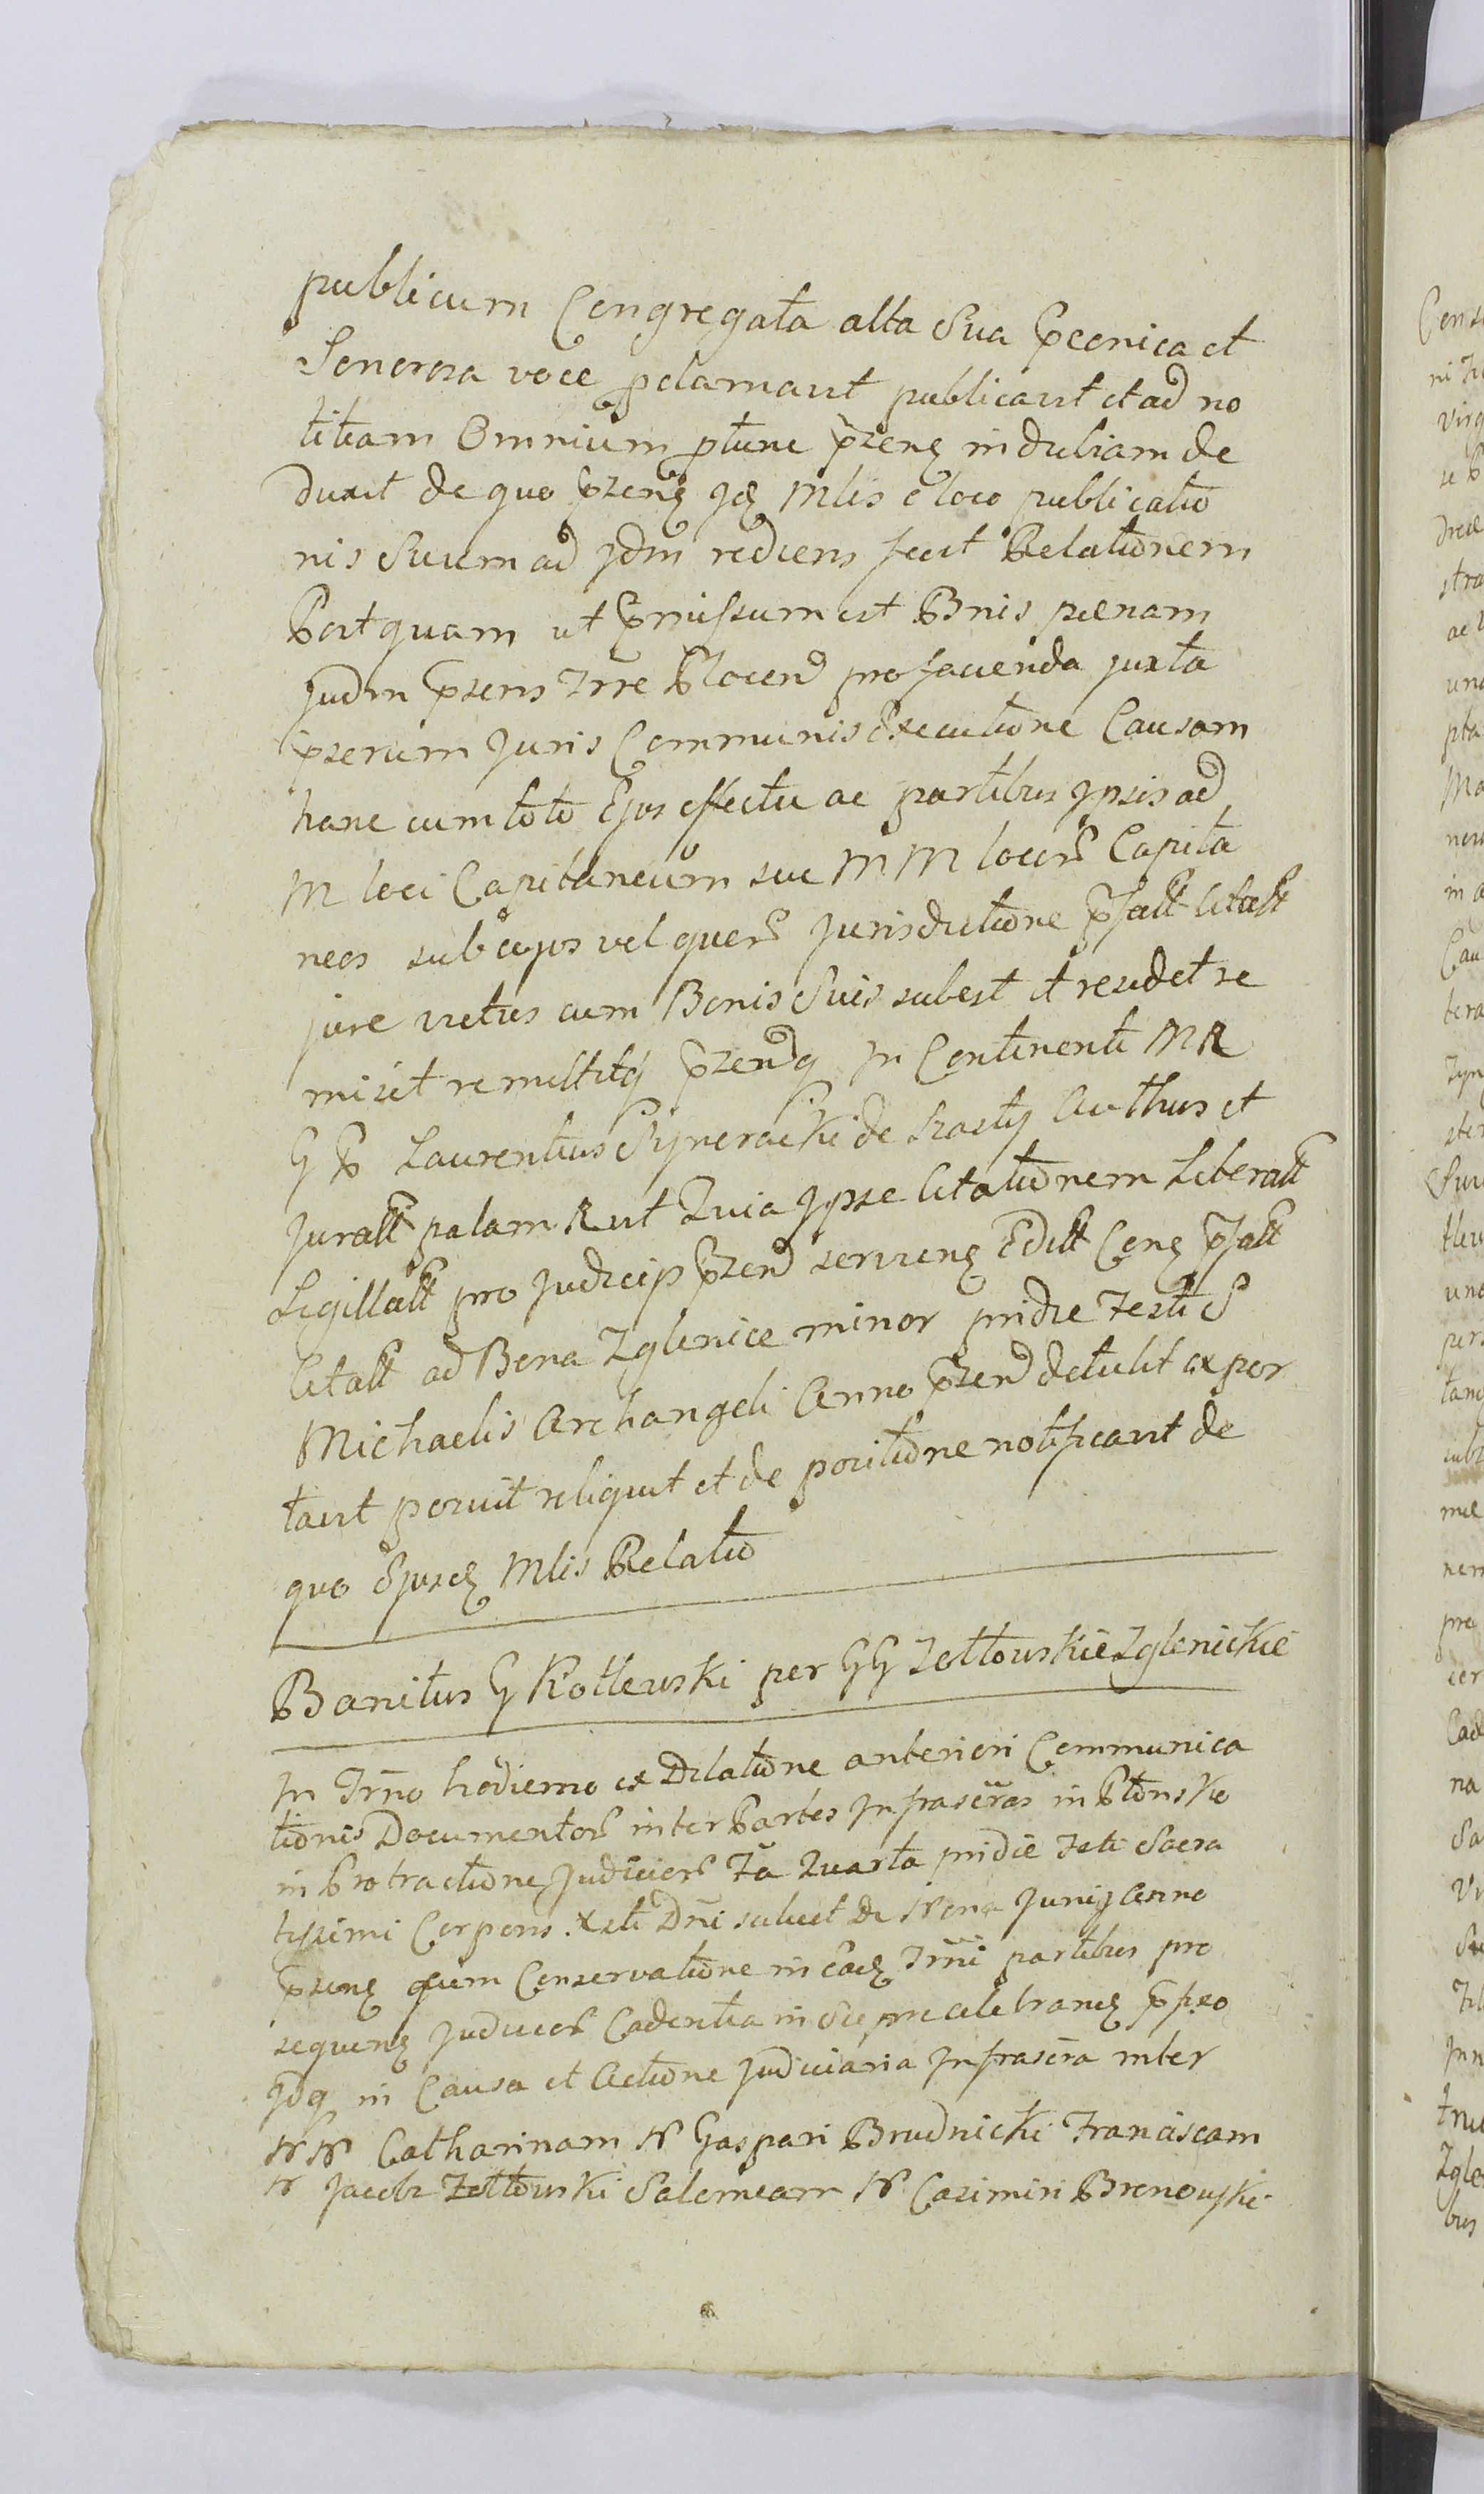 publicum Congregata alta Sua Pconica et
Sonorosa voce pclamavit publicavit et ad no
titiam Omnium ptunc Pzenq indubiam de
duxit de quo Pzenq jdq Mlis e loco publicatio
nis Suum ad jdm rediens fecit Relationem
Postquam ut Pmissum est Bnis pænam
judm Pzens Trre Plocen pro facienda juxta
pserum juris Communis Executione Causam
hanc cum toto Ejus effectu ac partibus jpsis ad
M loci Capitaneum seu MM locor Capita
neos sub cujus vel quor jurisdictione Pfatt Citatt
jure victus cum Bonis Suis subest et residet re
misit remittitq Pzen q In Continenti MR
G P Laurentius Szyneracki de Szasty Authus et
juratt palam R ut Quia jpse Citationem Liberatt
Sigillatt pro judicijs Pzen servienq Editt Cenq Pfatt
Citatt ad Bona Zglenice minor pridie Festi S
Michaelis Archangeli Anno Pzen detulit expor
tavit posuit reliquit et de positione notificavit de
quo Ejusdq Mlis Relatio
Banitus G Kotlewski per GG Zottowskie Zglenickie
In Trno hodierno ex Dilatione anteriori Communica
tionis Documentor inter Partes jnfrascras in Plonsko
in Protractione judicior Fa Quarta pridie Festi Sacra
tissimi Corporis Xsti Dni scilicet Die Nona Junij Anno
Pzenq cum Conservatione in Eadq Trmi partibus pro
sequenq judicior Cadentia in Sierpne celebranq Pfixo
qdq in Causa et Actione judiciaria jnfrascra inter
NN Catharinam N Gaspari Brudnicki Franciscam
N Jacobi Zottowski Salomeam N Casimiri Bronowski